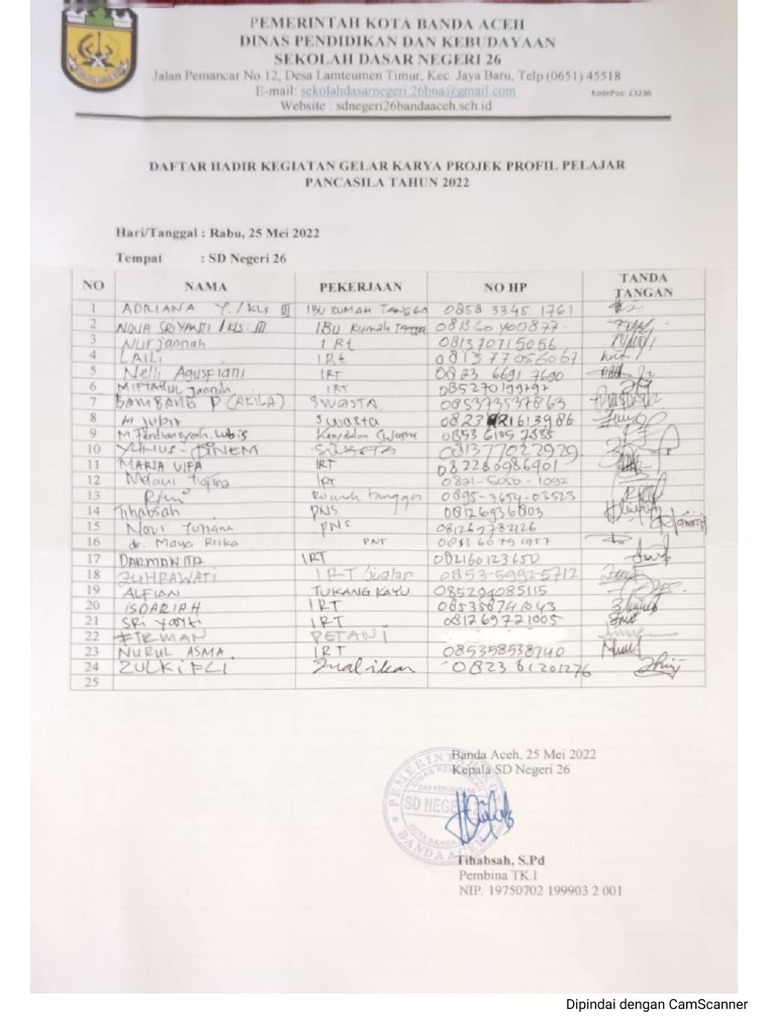 PEMERINTAH KOTA BANDA ACEH
DINAS PENDIDIKAN DAN KEBUDAYAAN
SEKOLAH DASAR NEGERI 26
Jalan Pemancar No.12, Desa Lamteumen Timur, Kec. Jaya Baru, Telp (0651) 45518
E-mail: sekolahdasarnegeri.26bna@gmail.com KodePos: 23236
Website : sdnegeri26bandaaceh.sch.id
DAFTAR HADIR KEGIATAN GELAR KARYA PROJEK PROFIL PELAJAR
PANCASILA TAHUN 2022
Hari/Tanggal : Rabu, 25 Mei 2022
Tempat : SD Negeri 26
NO NAMA PEKERJAAN NO HP TANDA TANGAN
1 ADRIANA Y. / KLS III IBU RUMAH TANGGA 0858 3345 1761
2 NOVA SRIYANTI / KLS III IBU Rumah Tangga
3 Nurjannah IRt 081370715056
4 LAILI IRt 081377056067
5 Nelli Agustiani IRT 0823 6691 7690
6 MIFTAHUL Jannah IRT
7 BAMBANG P (AKILA) SWASTA 085373537863
8 M Jubir Swasta
9 M. Ferdiansyah Lubis
10 YUNUS - PINEM SWASTA 081377022929
11 MARIA ULFA IRT 082280986901
12 IRT 0821-5050-1092
13 Rumah tangga 0895-3654-03523
14 Tihabsah PNS 08126936803
15 Novi Yuliana PNS
16 dr. Maya Riska PNT
17 DARMANITA IRT 082160123650
18 ZUHRAWATI IRT/Jualan 0853-5992-5712
19 ALFIAN TUKANG KAYU 085294085115
20 ISDARIAH IRT 085358741043
21 Sri Yanti IRT 081269721005
22 FIRMAN PETANI
23 NURUL ASMA IRT 085358538740
24 ZULKIFLI Jual ikan 082361201276
25
Banda Aceh, 25 Mei 2022
Kepala SD Negeri 26
SD NEGERI
BANDA ACEH
Tihabsah, S.Pd
Pembina TK.I
NIP. 19750702 199903 2 001
Dipindai dengan CamScanner